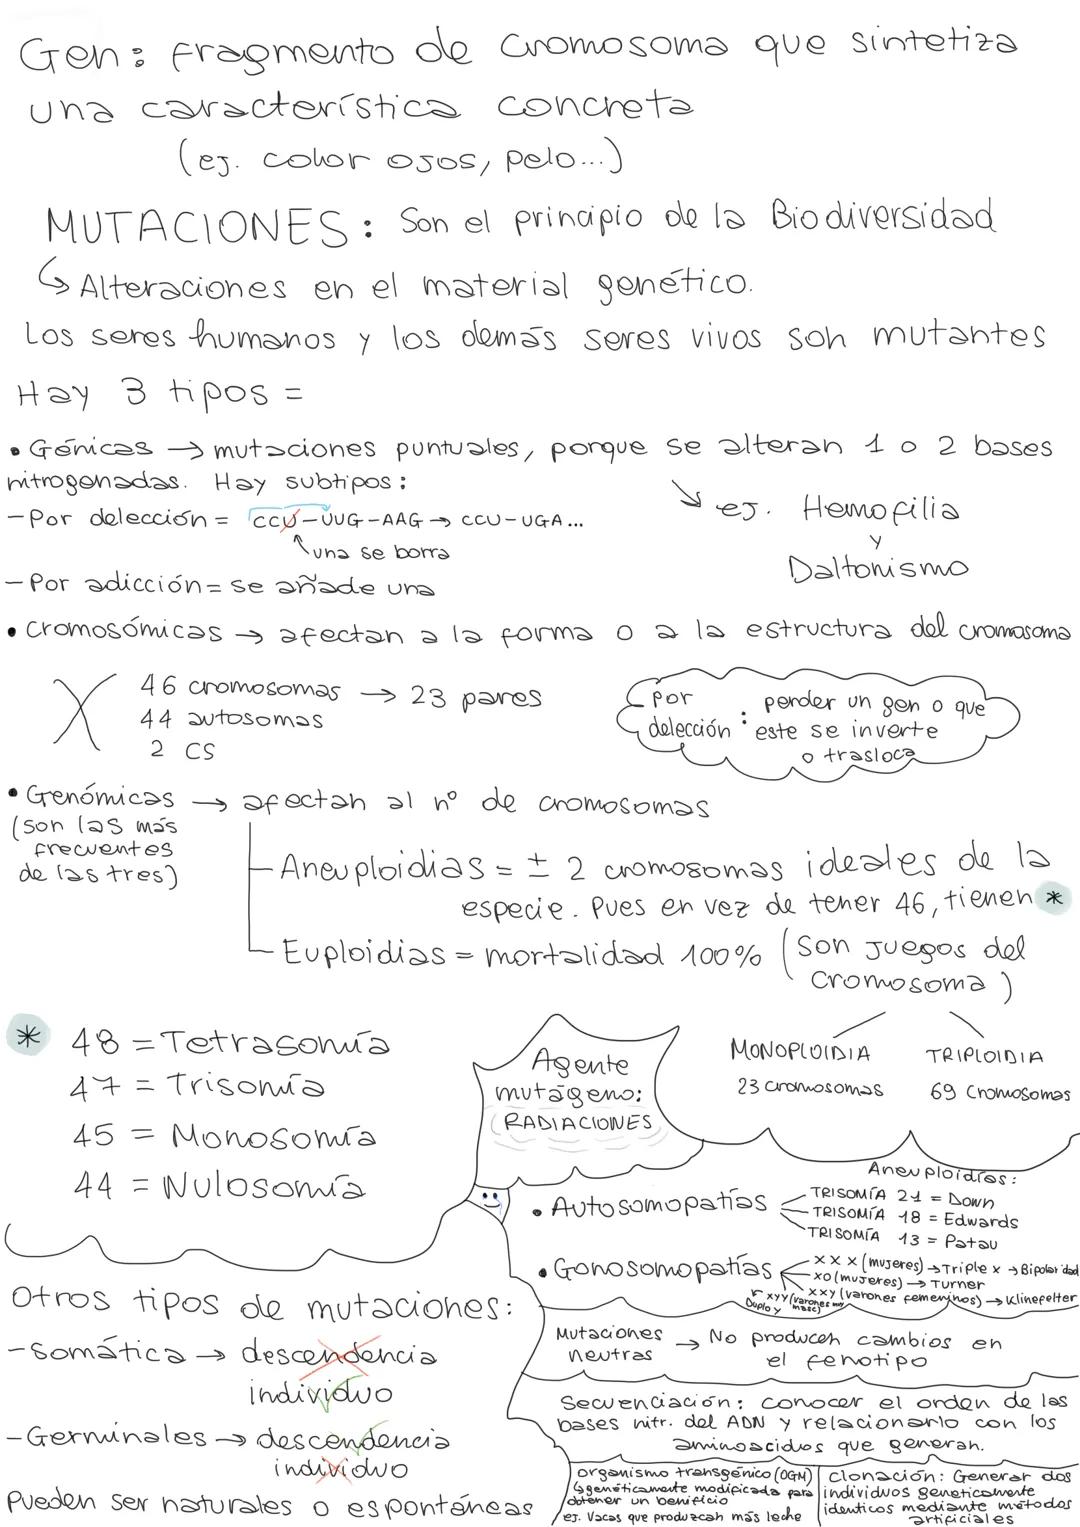 Gen: Fragmento de cromosoma que sintetiza
una característica concreta
(ej. color ojos, pelo...)
MUTACIONES: Son el principio de la Biodiversidad
↳ Alteraciones en el material genético.
Los seres humanos y los demás seres vivos son mutantes
Hay 3 tipos =
• Génicas → mutaciones puntuales, porque se alteran 1 o 2 bases
nitrogenadas. Hay subtipos:
↘ ej. Hemofilia
y
Daltonismo
- Por delección = CCU-UUG-AAG → CCU-UGA...
↑ una se borra
- Por adicción = se añade una
• Cromosómicas → afectan a la forma o a la estructura del cromosoma
46 cromosomas → 23 pares
44 autosomas
2 CS
Por delección : perder un gen o que
este se inverte
o trasloca
• Genómicas → afectan al nº de cromosomas
(son las más
frecuentes
de las tres)
Aneuploidias = ± 2 cromosomas ideales de la
especie. Pues en vez de tener 46, tienen *
Euploidias = mortalidad 100% (son juegos del
cromosoma)
MONOPLOIDIA
23 cromosomas
TRIPLOIDIA
69 cromosomas
* 48 = Tetrasomía
47 = Trisomía
45 = Monosomía
44 = Nulosomía
Agente
mutágeno:
RADIACIONES
Aneuploidías:
• Autosomopatías
TRISOMÍA 21 = Down
TRISOMÍA 18 = Edwards
TRISOMÍA 13 = Patau
• Gonosomopatías
XXX (mujeres) → Triple x → Bipolaridad
XO (mujeres) → Turner
XXY (varones femeninos) → Klinefelter
XYY (varones muy masc)
Duplo y
Otros tipos de mutaciones:
- Somática → descendencia
individuo
- Germinales → descendencia
individuo
Pueden ser naturales o espontáneas
Mutaciones neutras → No producen cambios en
el fenotipo
Secuenciación: conocer el orden de las
bases nitr. del ADN y relacionarlo con los
aminoacidos que generan.
organismo transgénico (OGM)
↳ genéticamente modificada para
obtener un benificio
ej. Vacas que produzcan más leche
clonación: Generar dos
individuos genéticamente
identicos mediante métodos
artificiales